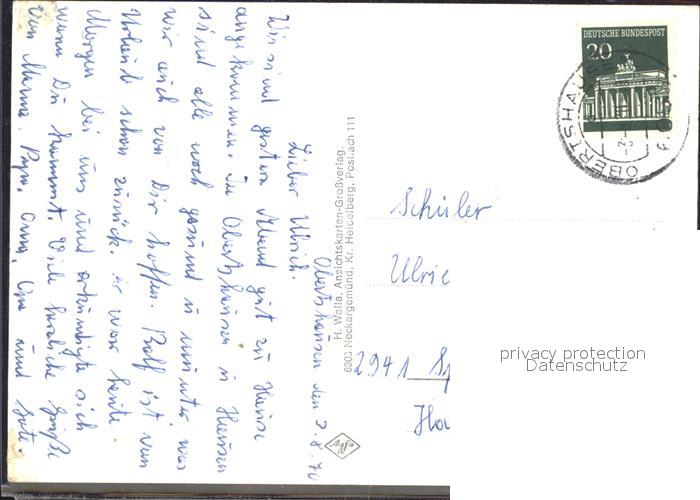 Obertshausen den 3.8.70
Lieber Ulrich.
Wir sind gestern Abend gut zu Hause
angekommen. In Obertshausen u Hausen
sind alle noch gesund u munter was
wir auch von Dir hoffen. Ralf ist vom
Urlaub schon zurück. er war heute
Morgen bei uns und erkundigte sich
wann Du kommst. Viele herzliche Grüße
von Mama, Papa, Oma, Opa und
H. Walla, Ansichtskarten-Großverlag,
6903 Neckargemünd, Kr. Heidelberg, Postfach 111
DEUTSCHE BUNDESPOST
20
OBERTSHAUSEN
Schüler
Ulric
2941
privacy protection
Datenschutz